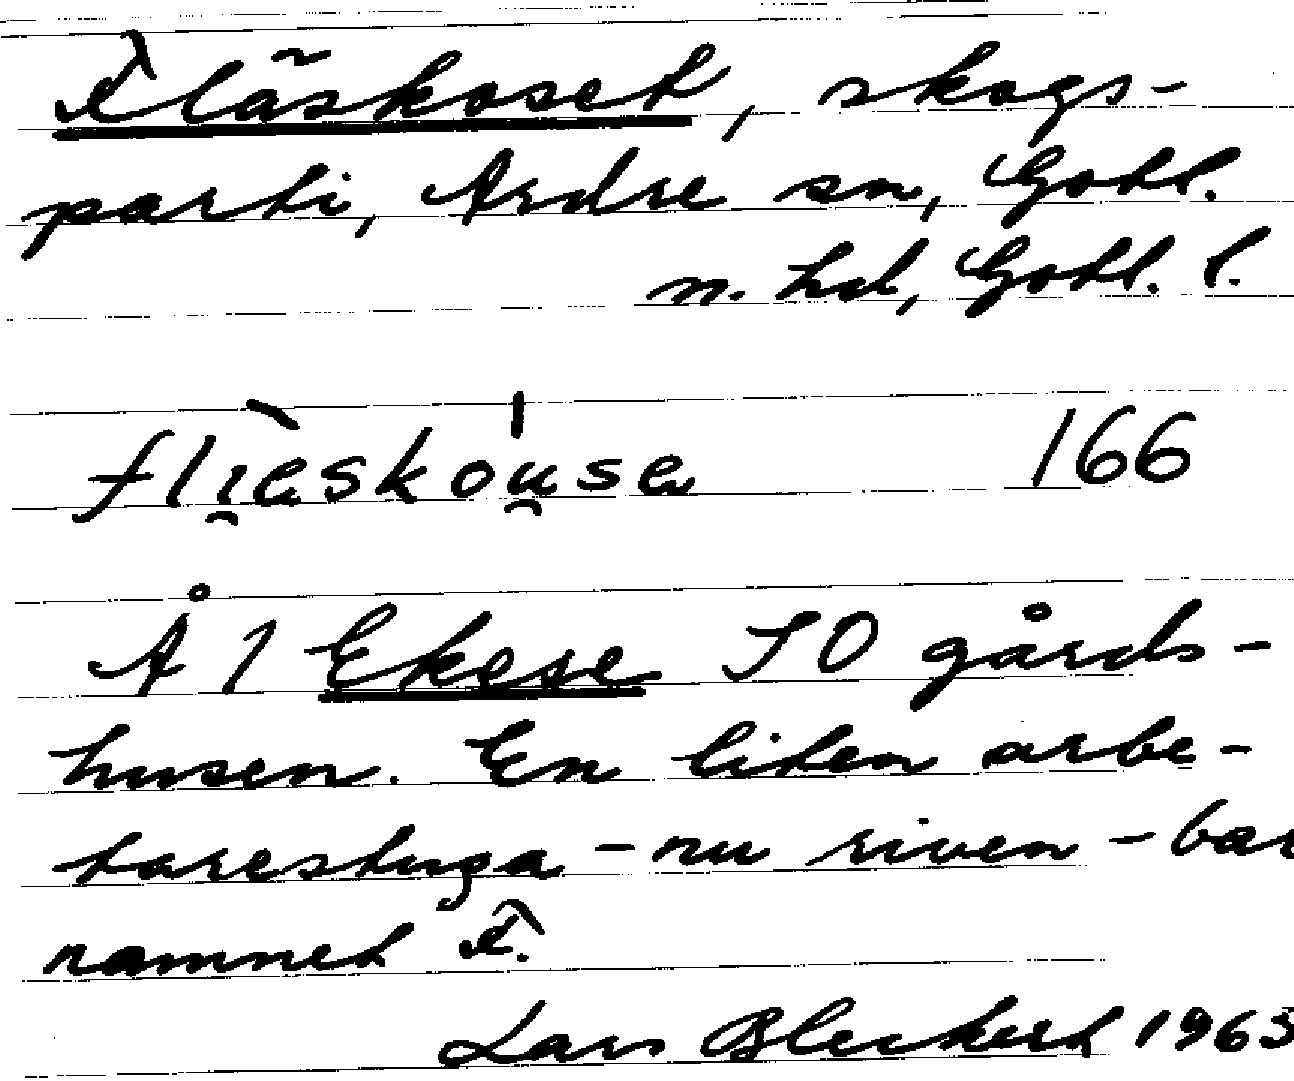 Fläskoset, skogs-
parti, Ardre sn, Gotl.
n. hd, Gotl. l.
fli̯èsko̯úsε 166
Å 1 Ekese SO gårds-
husen. En liten arbe-
tarestuga - nu riven - bar
namnet F.
Lars Bleckert 1963